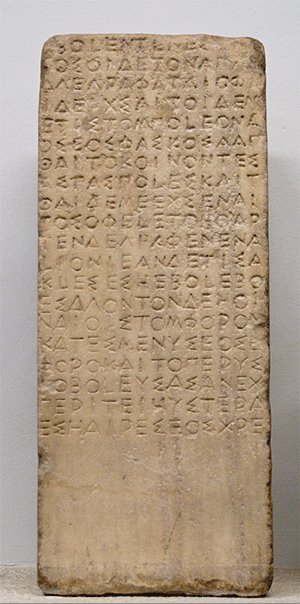 ΒΟΛΕΝΤΕΜΕΣ
ΟΣΟΙΔΕΤΟΝΑΡΓΥ
ΔΕΓΡΑΦΣΑΤΑΙΟΦ
ΙΔΕΡΧΣΑΙΤΟΙΔΕΝ
ΕΤΙΣΤΟΜΠΟΛΕΟΝΑ
ΟΣΕΟΣΦΑΣΚΟΣΑΑΠ
ΘΑΙΤΟΚΟΙΝΟΝΤΕΣ
ΙΣΠΑΣΠΟΛΕΣΚΑΙ
ΘΑΙΔΕΜΕΕΧΣΕΝΑΙ
ΤΟΣΟΦΕΛΕΤΟΙΓΑΡ
ΓΕΝΔΕΓΡΑΦΕΝΕΝΑ
ΙΟΝΙΕΑΝΔΕΤΙΣΑ
ΣΛΕΣΕΣΗΕΒΟΛΕΒΟ
ΕΣΔΛΟΝΤΟΝΔΕΗΟΙ
ΝΑΙΟΙΣΤΟΜΦΟΡΟΝ
ΚΑΤΕΣΜΕΝΥΣΕΟΣ
ΦΟΡΟΚΑΙΤΟΠΕΡΥΣΙ
ΟΒΟΛΕΥΣΑΣΑΝΕΧ
ΠΕΡΙΤΕΙΗΥΣΤΕΡΑ
ΕΣΗΑΙΡΕΣΕΟΣΧΡΕ